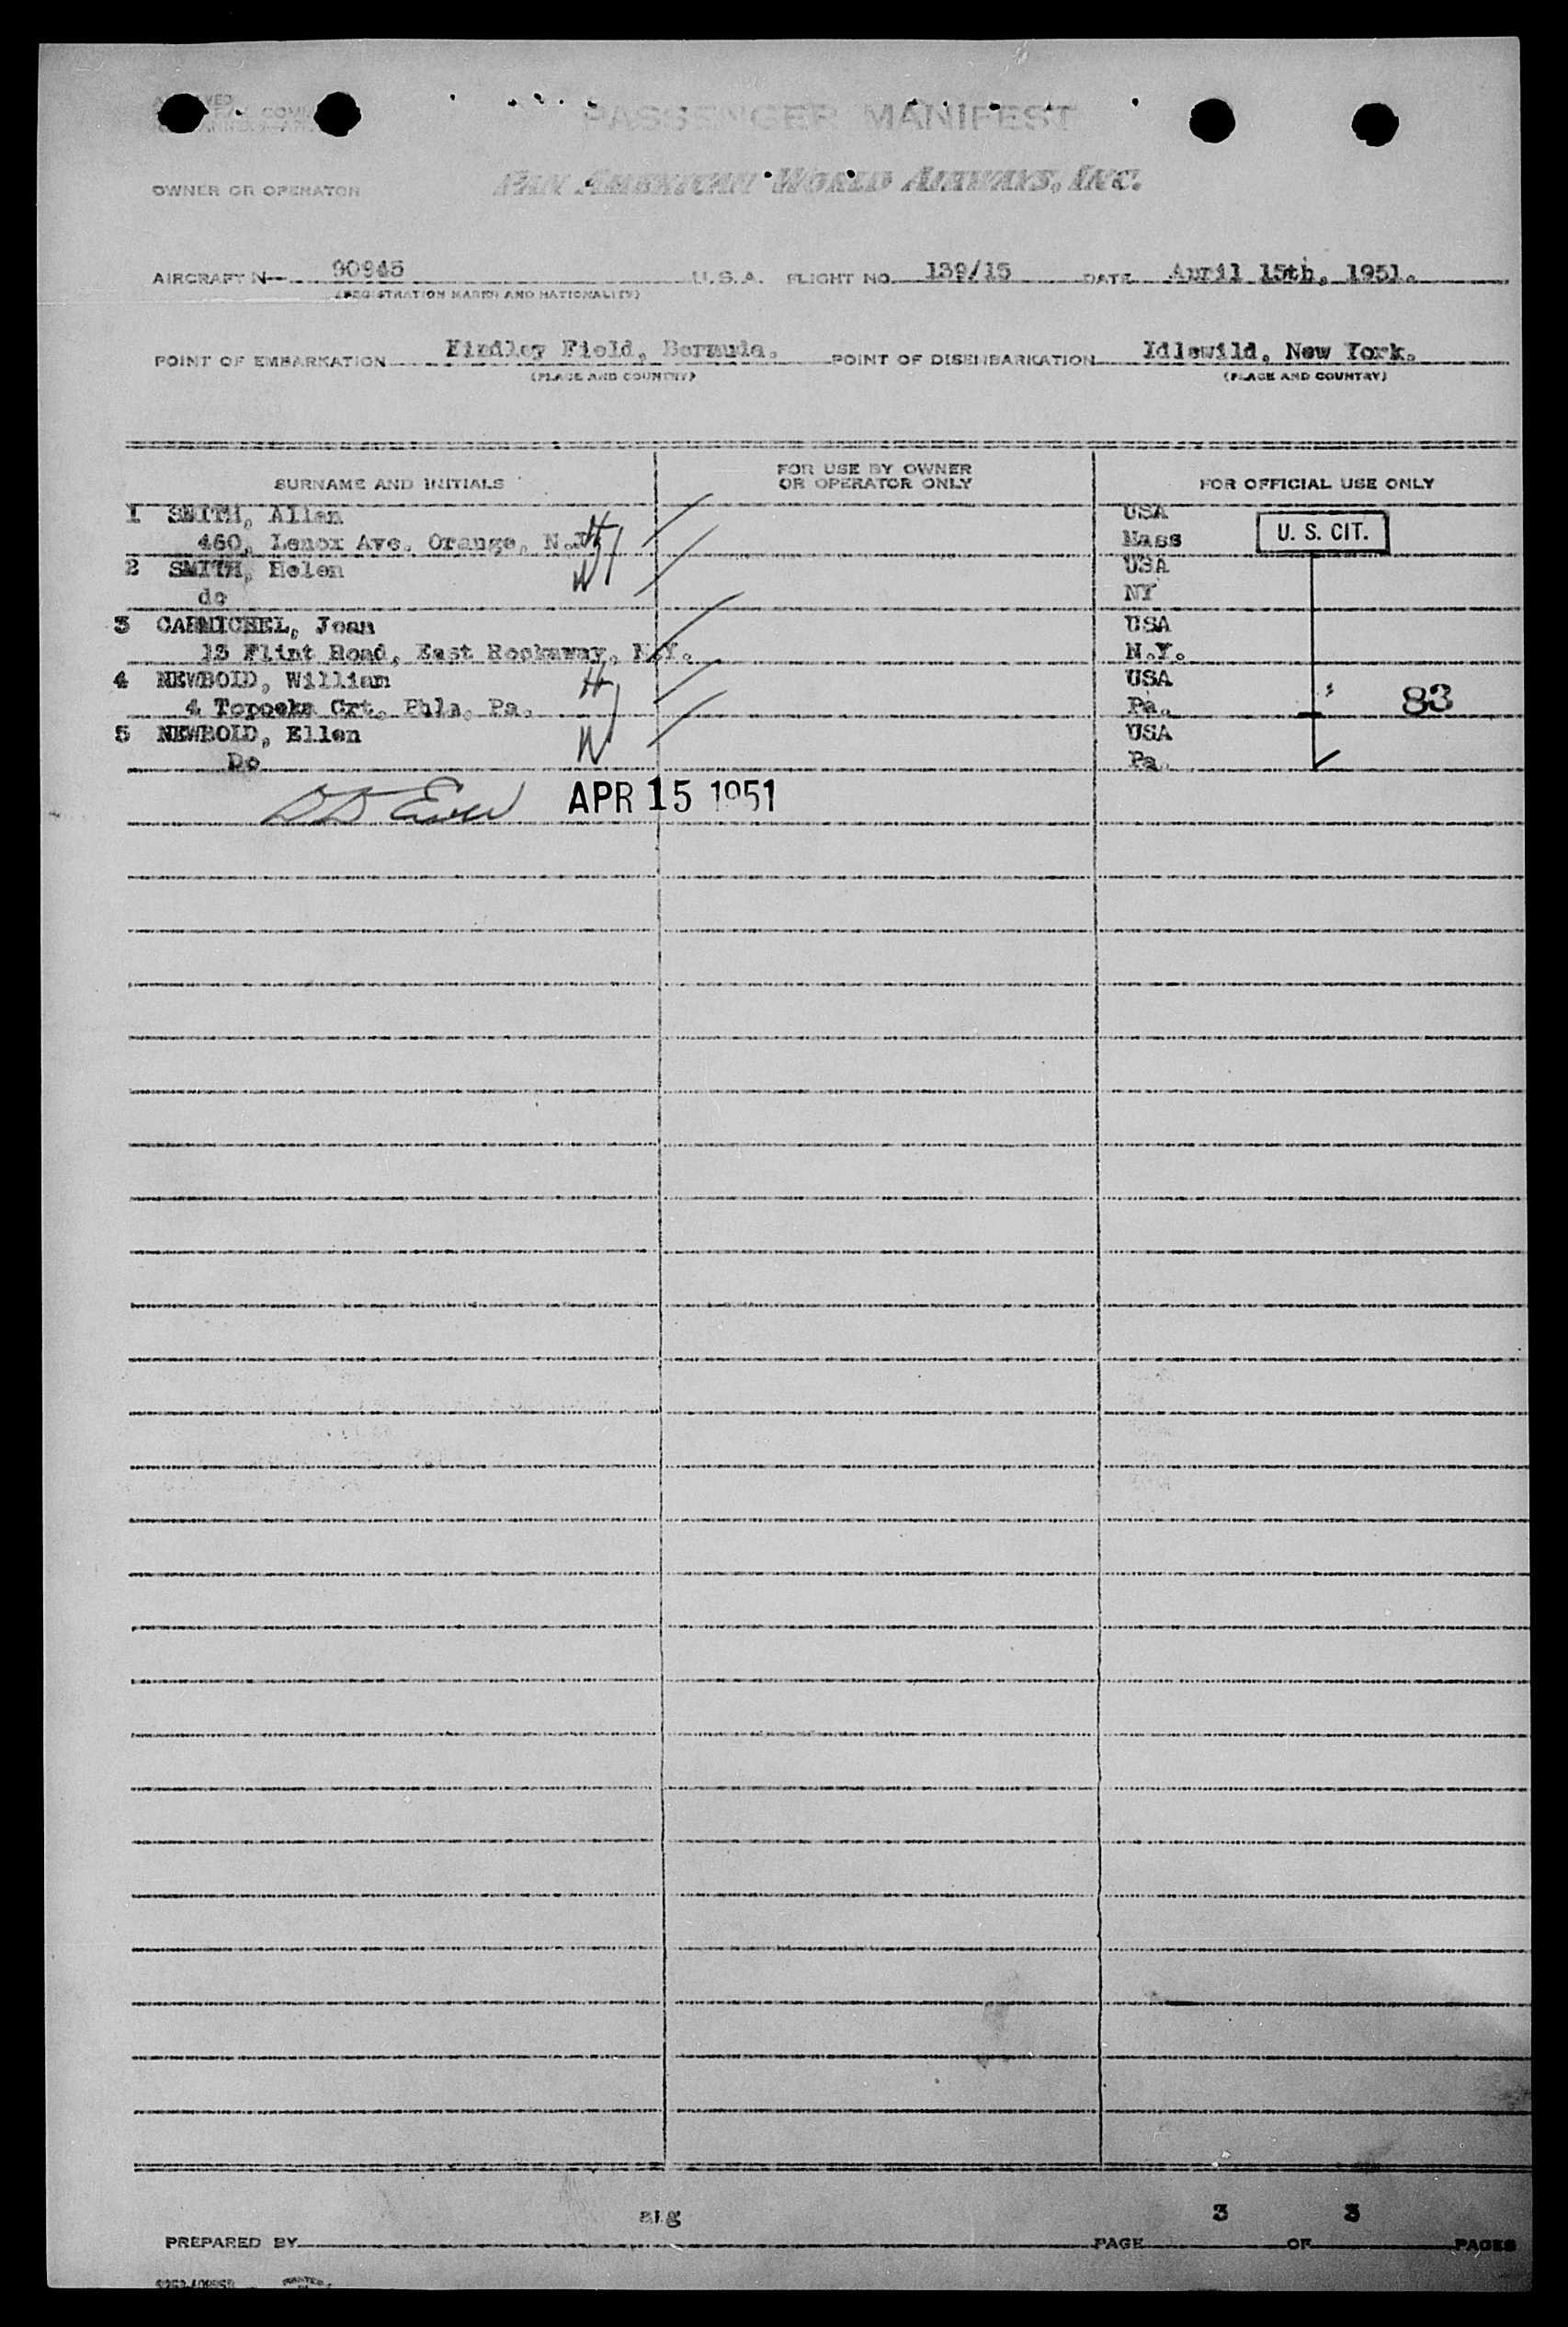 PASSENGER MANIFEST
OWNER OR OPERATOR PAN AMERICAN WORLD AIRWAYS, INC.
AIRCRAFT N 90945 U.S.A. FLIGHT NO. 139/15 DATE April 15th, 1951.
(REGISTRATION MARKS AND NATIONALITY)
POINT OF EMBARKATION Kindley Field, Bermuda. POINT OF DISEMBARKATION Idlewild, New York.
(PLACE AND COUNTRY) (PLACE AND COUNTRY)
SURNAME AND INITIALS FOR USE BY OWNER OR OPERATOR ONLY FOR OFFICIAL USE ONLY
1 SMITH, Allan USA
460, Lenox Ave. Orange, N.J. H Mass U. S. CIT.
2 SMITH, Helen W USA
do NY
3 CARMICHEL, Jean USA
13 Flint Road, East Rockaway, N.Y. N.Y.
4 NEWBOLD, William H USA
4 Topoeka Crt. Phla. Pa. Pa. 83
5 NEWBOLD, Ellen W USA
Do Pa.
APR 15 1951
PREPARED BY PAGE 3 OF 3 PAGES